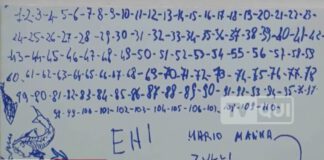 1-2-3-4-5-6-7-8-9-10-11-12-13-14-15-16-17-18-19-20-21-22-23-
24-25-26-27-28-29-30-31-32-33-34-35-36-37-38-39-40-41-42-
43-44-45-46-47-48-49-50-51-52-53-54-55-56-57-58-59
60-61-62-63-64-65-66-67-68-69-70-71-72-73-74-75-76-77-78
79-80-81-82-83-84-85-86-87-88-89-90-91-92-93-94-95-96-97
98-99-100-101-102-103-104-105-106-107-108-109-110
EHI
MARIO